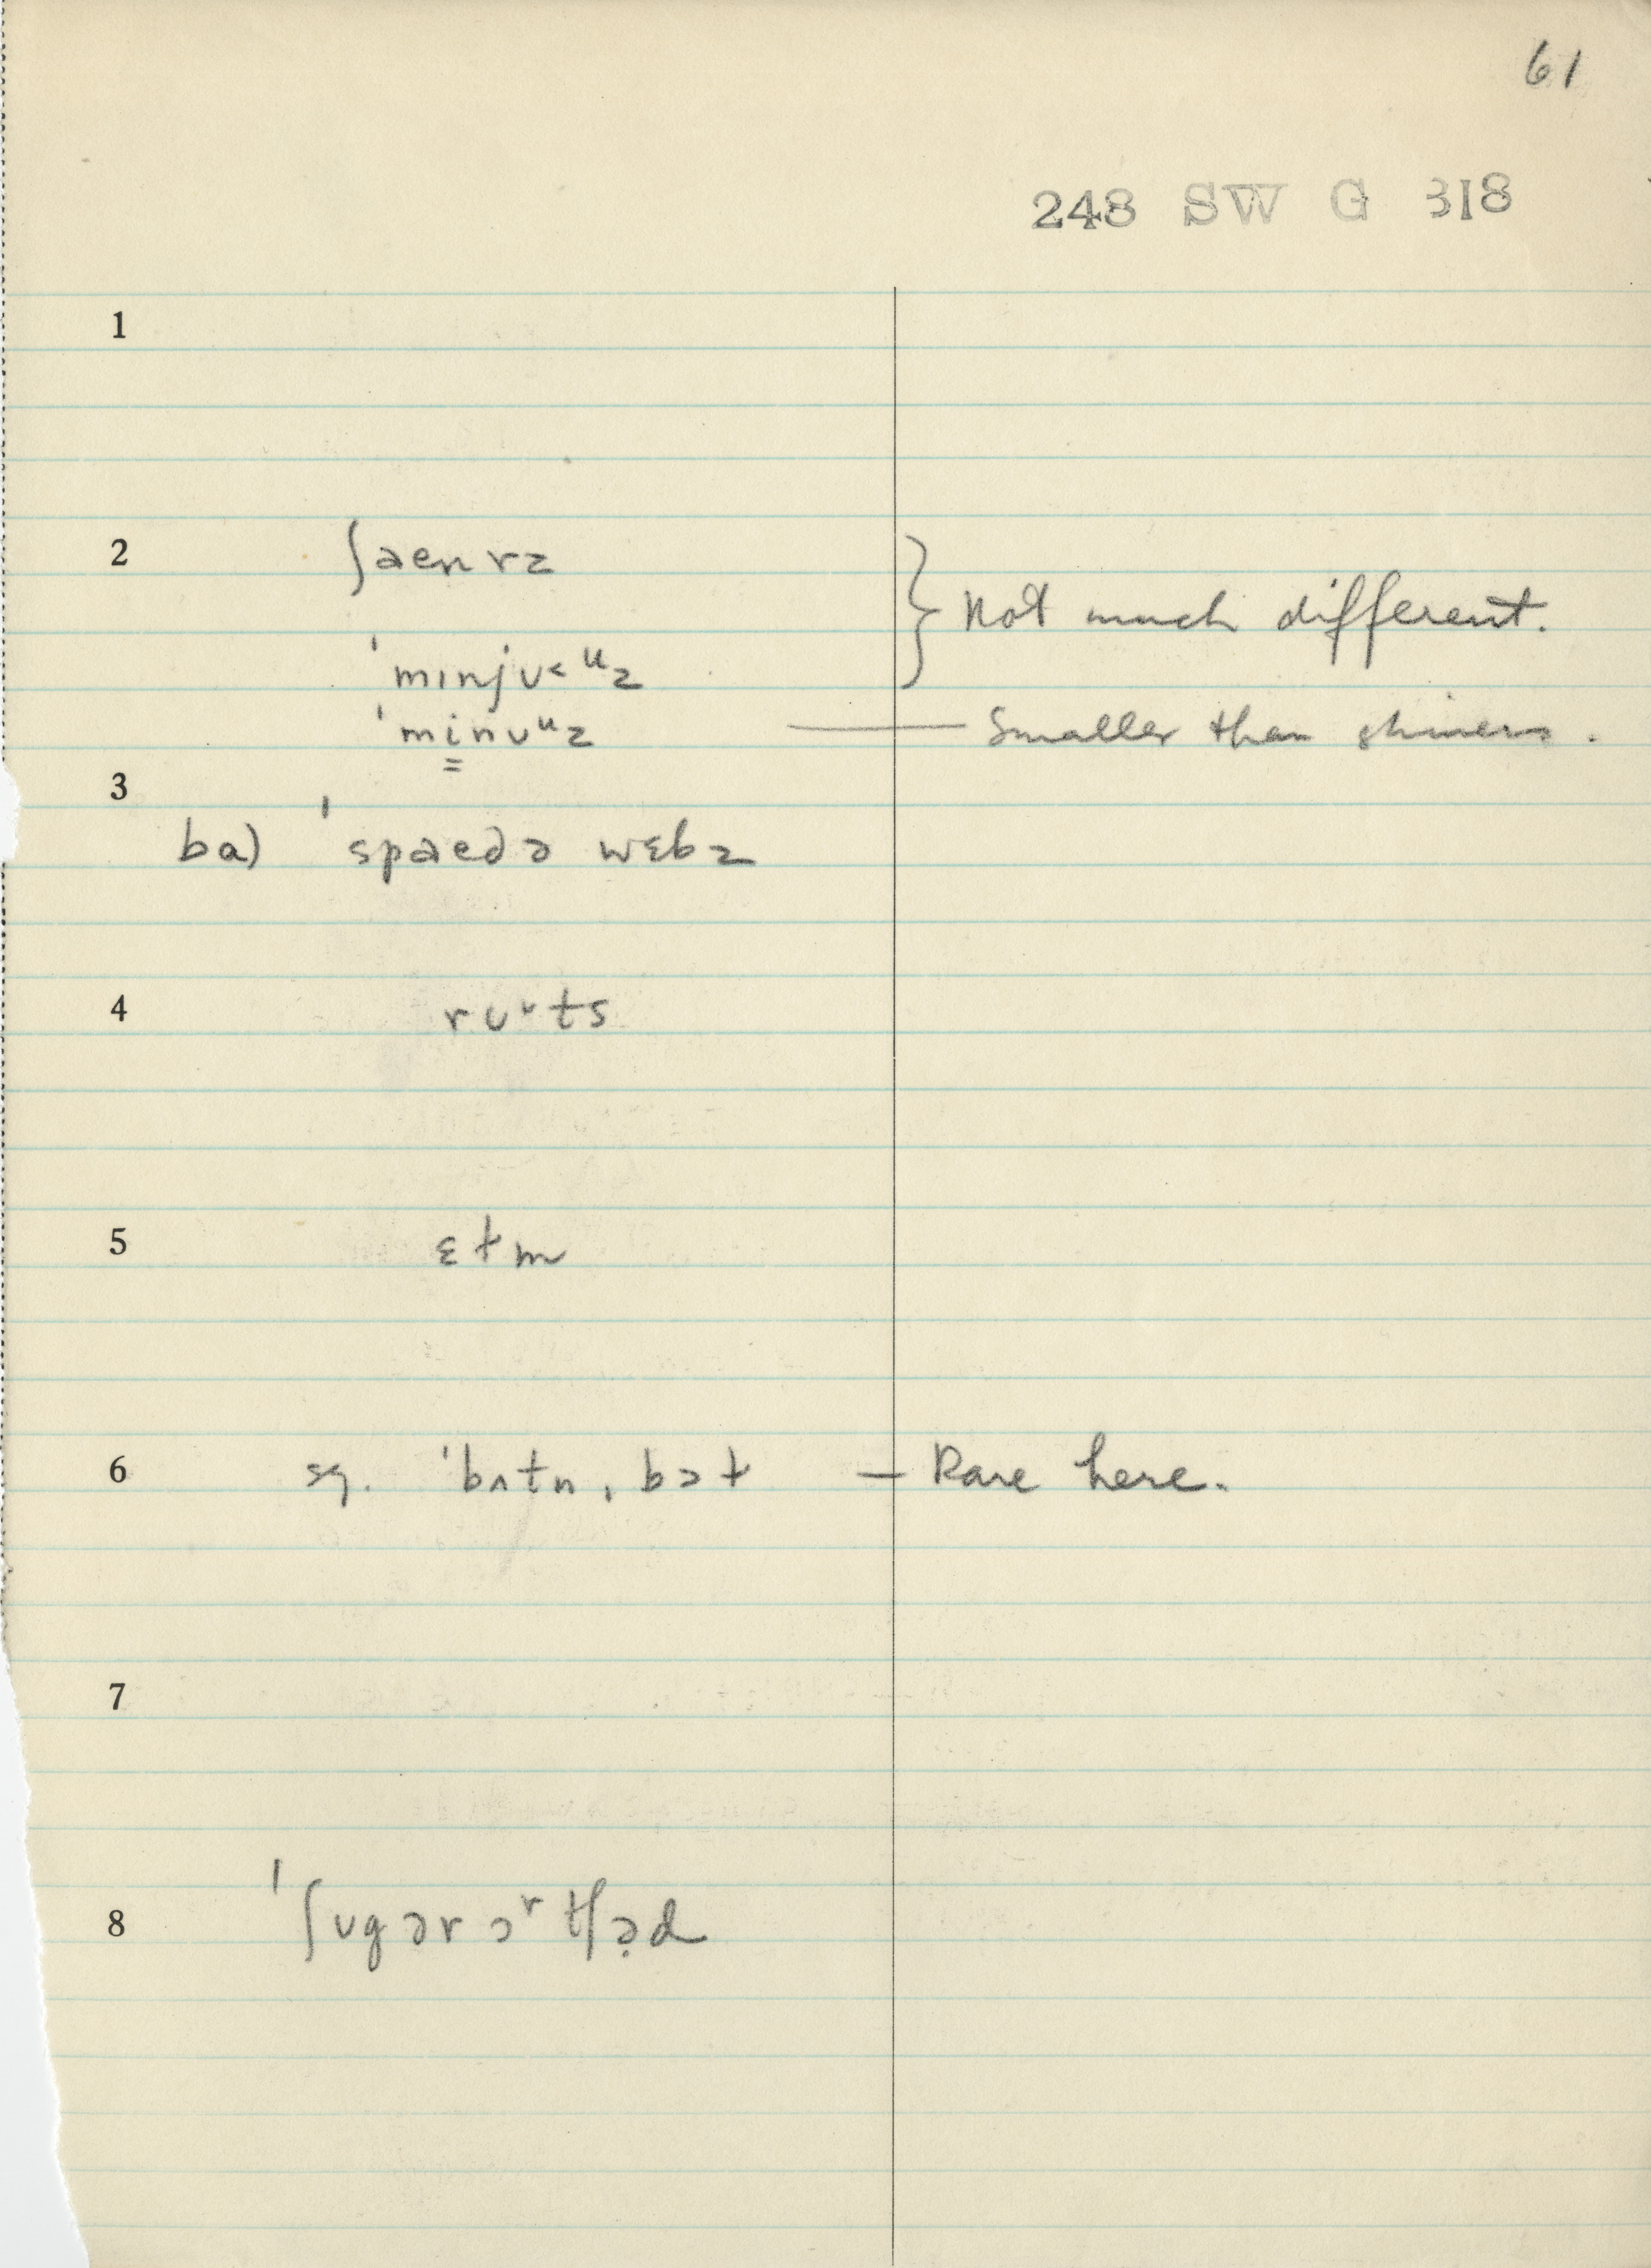 61
248 SW G 318
1
2 ʃaenrz } Not much different.
ˈmɪnjʊ< ᵘz
ˈminʊᵘz — Smaller than shiners.
3
ba) ˈspaedə wɛbz
4 rʊᶹts
5 ɛɫm
6 sg. ˈbʌtn, bɔɫ — Rare here.
7
8 ˈʃʊgər ɔʳtʃə̣d